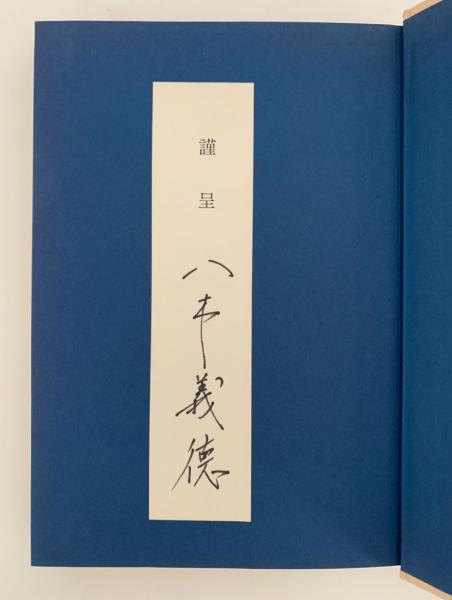 謹呈
八木義徳